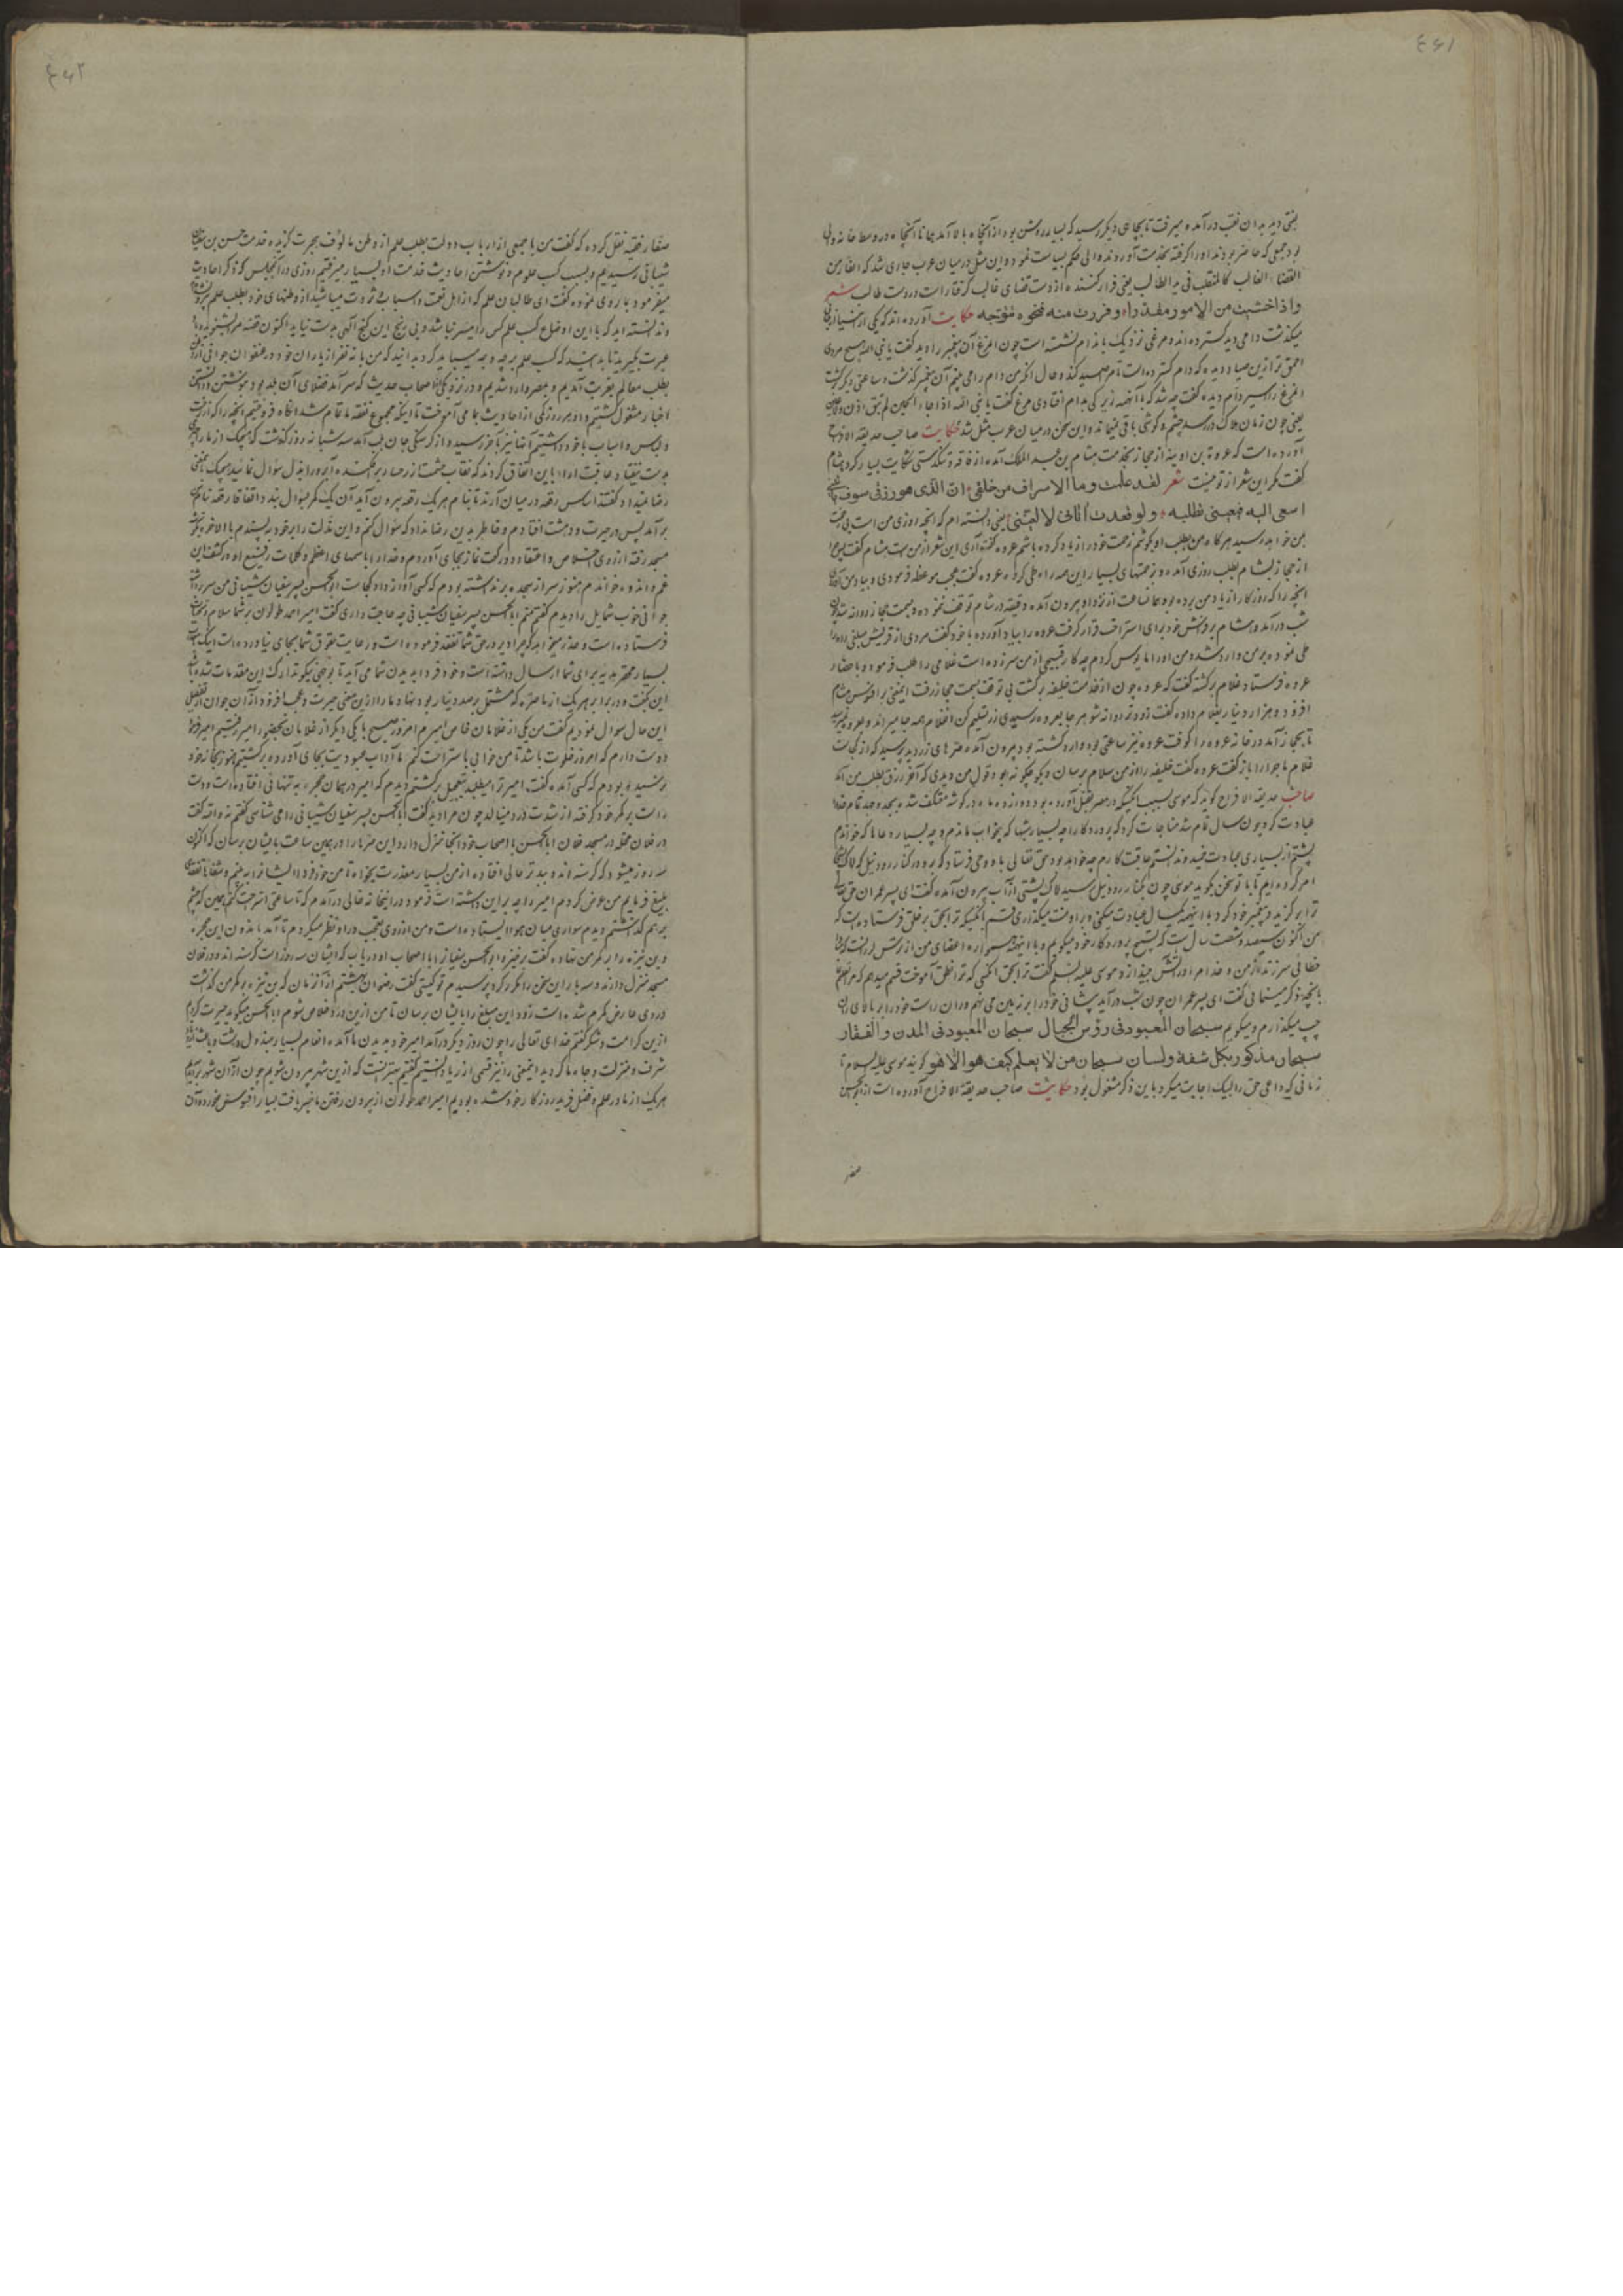 ۴۶۱
نقبی دید بدان نقب درآمده میرفت تا بجای دیگر رسید که بسیار روشن بود از آنجا بالا آمد همانا آنجا در وسط خانه والی
بود جمعی که حاضر بودند او را گرفته بخدمت آوردند والی حکم بسیاست نموده و این مثل در میان عرب جاری شد که الفار من
القضاء الغالب کالمتقلب فی ید الطالب یعنی فرار کننده از دست قضای غالب گرفتار است در دست طالب شعر
واذا خشیت من الامور مقدرا و فررت منه فنحوه تتوجه حکایت آورده‌اند که یکی از انبیا براهی
میگذشت دامی دید گسترده‌اند و مرغی نزدیک بدام نشسته است چون مرغ آن پیغمبر را دید گفت یا نبی الله هیچ مردی
احمق‌تر ازین صیاد دیده که دام گسترده است تا مرا صید کند و حال آنکه من دام را می بینم آن پیغمبر گذشت و ساعتی دیگر برگشت
مرغ را اسیر دام دیده گفت چه شد که با آنهمه زیرکی بدام افتادی مرغ گفت یا نبی الله اذا جاء الحین لم تبق اذن و لا عین
یعنی چون زمان هلاک در رسد چشم و گوشی باقی نمیماند و این سخن در میان عرب مثل شد حکایت صاحب حدیقة الافراح
آورده است که عروة بن اذینه از حجاز بخدمت هشام بن عبد الملک آمده از فاقه و تنگدستی شکایت بسیار کرد هشام
گفت مگر این شعر از تو نیست شعر لقد علمت وما الاسراف من خلقی ان الذی هو رزقی سوف یاتینی
اسعی الیه فیعیینی تطلبه ولو قعدت اتانی لا یعنینی یعنی دانسته‌ام که آنچه روزی من است بی محنت
بمن خواهد رسید هرگاه من بطلب او بکوشم زحمت خود را زیاد کرده باشم عروه گفت آری این شعر از من است هشام گفت پس چرا
از حجاز بشام بطلب روزی آمده و زحمتهای بسیار این همه راه طی کرده عروه گفت عجب موعظه فرمودی و بیاد من آوردی
آنچه را که روزگار از یاد من برده بود همان ساعت از نزد او بیرون آمده دقیقه در شام توقف ننموده و بسمت حجاز روانه شد چون
شب درآمد هشام بر فراش خود برای استراحت قرار گرفت عروه را بیاد آورده با خود گفت مردی از قریش مبلغی راه را
طی نموده بر من وارد شد و من او را مایوس کردم چه کار قبیحی از من سر زده است غلامی را طلب فرمود و باحضار
عروه فرستاد غلام برگشته گفت که عروه چون از خدمت خلیفه برگشت بی توقف بسمت حجاز رفت اینمعنی بر افسوس هشام
افزود و هزار دینار بغلام داده گفت زود تر روانه شو هر جا بعروه رسیدی زر تسلیم کن غلام همه جا میراند و بعروه نمیرسید
تا بحجاز آمد در خانه عروه را کوفت عروه نیز ساعتی بود وارد گشته بود بیرون آمده صره‌های زر دید پرسید که از کجاست
غلام ماجرا را باز گفت عروه گفت خلیفه را از من سلام برسان و بگو چگونه بود قول من دیدی که آخر رزق بطلب من آمد
صاحب حدیقة الافراح گوید که موسی بسبب آنکه در مصر بقتل آورده بود دوازده ماه در گوشه معتکف شد و بجد و جهد تمام خدا را
عبادت کرد چون سال تمام شد مناجات کرد که پروردگارا چه بسیار شبها که بخواب نماندم و چه بسیار دعاها که خواندم
پشتم از بسیاری عبادت خمید و ندانستم عاقبت کارم چه خواهد بود حق تعالی باو وحی فرستاد که برو در کنار رود نیل که لاک پشتی را
امر کرده‌ایم تا با تو سخن گوید موسی چون بکنار رود نیل رسید لاک پشتی از آب بیرون آمده گفت ای پسر عمران حق تعالی
ترا برگزید و پیغمبر خود کرد با اینهمه یکسال عبادت میکنی و بر او منت میگذاری قسم بآنکسیکه ترا بحق بر خلق فرستاده است که
من اکنون سیصد و شصت سال است که تسبیح پروردگار خود میگویم و با اینهمه همواره اعضای من از ترس لرزانست که مبادا
خطائی سر زند از من و خدایم در آتش بیندازد موسی علیه السلام گفت ترا بحق آنکسی که ترا نطق آموخت قسم میدهم که مرا تعلیم نما
بآنچه ذکر مینمائی گفت ای پسر عمران چون شب درآید پیشانی خود را بر زمین می نهم و ران راست خود را بر بالای ران
چپ میگذارم و میگویم سبحان المعبود فی رؤس الجبال سبحان المعبود فی المدن و القفار
سبحان مذکور بکل شفة و لسان سبحان من لا یعلم کیف هو الا هو گویند موسی علیه السلام تا
زمانی که داعی حق را لبیک اجابت میکرد باین ذکر مشغول بود حکایت صاحب حدیقة الافراح آورده است از ابو الحسن
صفار
۴۶۲
صفار فقیه نقل کرده که گفت من با جمعی از ارباب دولت بطلب علم از وطن مألوف هجرت گزیده خدمت حسن بن سفیان
شیبانی رسیدیم و بسبب کسب علوم و نوشتن احادیث خدمت او بسیار میرفتیم روزی در آنمجلس که ذکر احادیث
میفرمود بما روی نموده گفت ای طالبان علم که از اهل نعمت و اسباب ثروت میباشید از وطنهای خود بطلب علم
و ندانسته‌اید که با این اوضاع کسب علم کس را میسر نباشد و بی رنج این گنج الهی بدست نیاید اکنون قصه مرا بشنوید و
عبرت گیرید تا بدانید که کسب علم بر چه وجه میباید کرد بدانید که من با نه نفر از یاران خود در عنفوان جوانی
بطلب معالم بغربت آمدیم و بمصر وارد شدیم و در نزد یکی از اصحاب حدیث که سرآمد فضلای آن بلد بود بنوشتن
اخبار مشغول گشتیم و او هر روز یکی از احادیث بما می آموخت تا اینکه مجموع نفقه ما تمام شد آنگاه فروختیم آنچه را که از
و لباس و اسباب با خود داشتیم آنها نیز بآخر رسید و از گرسنگی جان بلب آمد سه شبانه روز گذشت که هیچیک از ما را چیزی
بدست نیفتاد عاقبت الامر باین اتفاق کردند که نقاب حشمت از رخسار برافکنده آبرو را بذل سؤال نمائیم هیچیک باین معنی
رضا نمیداد گفتند اساس رقعه در میان آرند تا بنام هر یک رقعه بیرون آید آن یک کمر بسؤال بندد اتفاقا رقعه بنام من
برآمد پس در حیرت و دهشت افتادم و خاطر بدین رضا نداد که سؤال کنم و این مذلت را بر خود بپسندم بالاخره بگوشه
مسجد رفته از روی اخلاص و اعتقاد دو رکعت نماز بجای آوردم و خدا را باسمهای اعظم و کلمات رفیع او در کشف این
غم و اندوه خواندم هنوز سر از سجده برنداشته بودم که کسی آواز داد کجاست ابو الحسن پسر سفیان شیبانی من سر برداشتم
جوانی خوب شمایل را دیدم گفتم منم ابو الحسن پسر سفیان شیبانی چه حاجت داری گفت امیر احمد طولون بر شما سلام
فرستاده است و عذر میخواهد که چرا دیر در حق شما تفقد فرموده است و رعایت حقوق شما بجای نیاورده است و اینک
بسیار محقر هدیه برای شما ارسال داشته است و خود فردا بدیدن شما می آید تا بوجهی نیکو تدارک این مقدمات شده باشد
این بگفت و در برابر هر یک از ما صره که مشتمل بر صد دینار بود بنهاد ما را ازین معنی حیرت و عجب افزود از آن جوان تفصیل
این حال سؤال نمودیم گفت من یکی از غلامان خاص امیرم امروز صبح با یکی دیگر از غلامان بحضور امیر رفتیم امیر فرمود
دوست دارم که امروز خلوت باشد تا من خوابی باستراحت کنم ما آداب عبودیت بجای آورده برگشتیم هنوز بخانه خود
نرسیده بودم که کسی آمده گفت امیر ترا میطلبد بتعجیل برگشتم دیدم که امیر در همان حجره به تنهائی افتاده است و دست
راست بر کمر خود گرفته از شدت درد مینالد چون مرا دید گفت ابو الحسن پسر سفیان شیبانی را می شناسی گفتم نه والله گفت
در فلان محله در مسجد فلان ابو الحسن با اصحاب خود آنجا منزل دارد این صره‌ها را در همین ساعت بایشان برسان که اکنون
سه روز میشود که گرسنه‌اند و بدتر حالی افتاده از من بسیار معذرت بخواه تا من خود فردا ایشان را ببینم
بلیغ فرمایم من عرض کردم امیر را چه بر این داشته است فرمود در اینخانه خالی درآمدم که تا ساعتی استراحت کنم همین که چشم
بر هم گذاشتم دیدم سواری میان هوا ایستاده است و من از روی تعجب در او نظر میکردم تا آمد باندرون این حجره
و بن نیزه را بر کمر من نهاده گفت برخیز و ابو الحسن سفیان را با اصحاب او دریاب که ایشان سه روز است گرسنه‌اند و در فلان
مسجد منزل دارند و سه بار این سخن را مکرر کرد پرسیدم تو کیستی گفت رضوان بهشتم از آنزمان که بن نیزه بر کمر من گذاشت
دردی عارض کمرم شده است زود این مبلغ را بایشان برسان تا من ازین درد خلاص شوم ابو الحسن میگوید حیرت کردم
ازین کرامت و شکر گفتم خدای تعالی را چون روز دیگر درآمد امیر خود بدیدن ما آمده انعام بسیار مبذول داشت و باعث
شرف و منزلت و جاه ما گردید اینمعنی را نیز قسمی از ریا دانستیم گفتیم بهتر آنست که ازین شهر بیرون شویم چون از آن شهر برآمدیم
هر یک از ما در علم و فضل فرید روزگار خود شده بودیم امیر احمد طولون از بیرون رفتن ما خبر یافت بسیار افسوس بخورد و آن